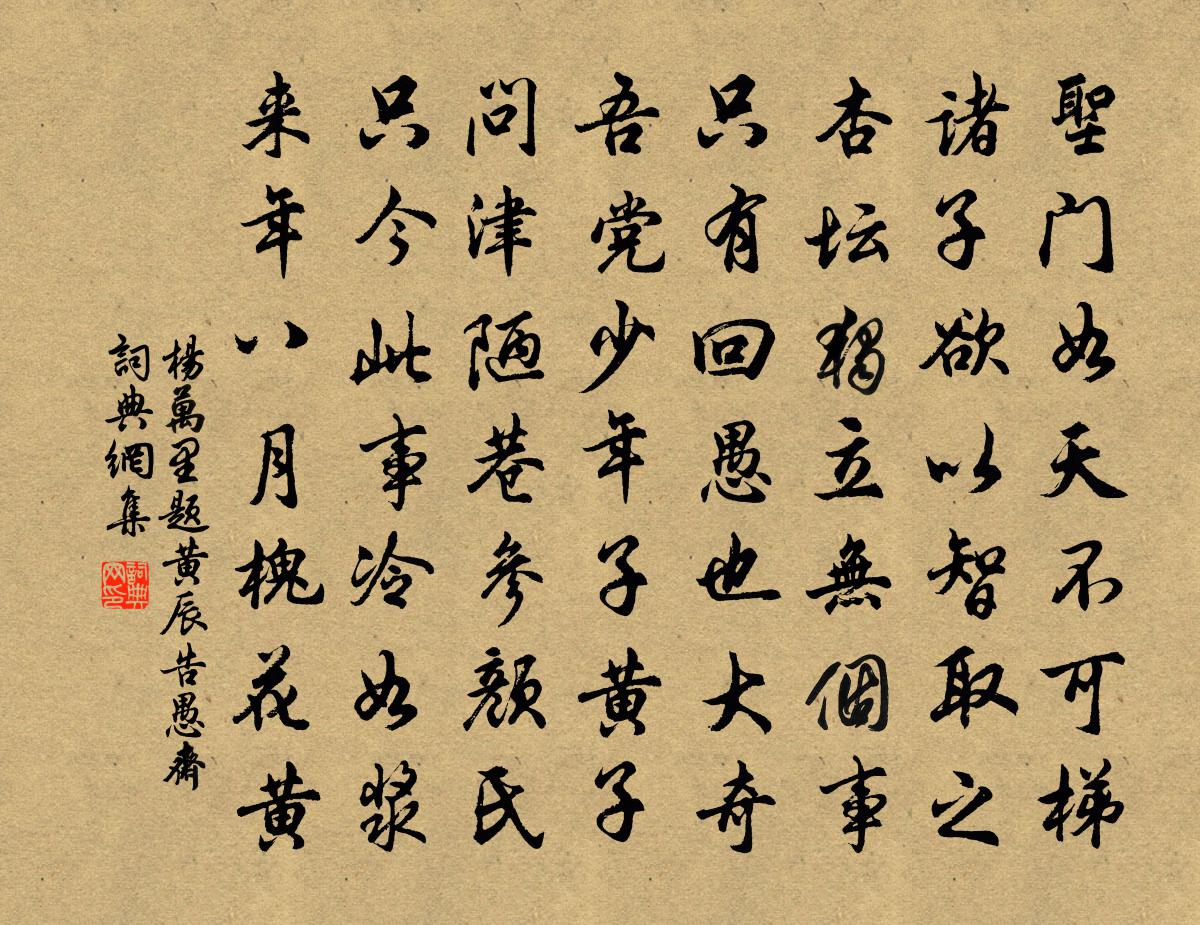 聖门如天不可梯
诸子欲以智取之
杏坛獨立無個事
只有回愚也大奇
吾党少年子黄子
问津陋巷参颜氏
只今此事冷如浆
来年八月槐花黄
楊萬里题黄辰告愚齋
詞典網集
詞典网印